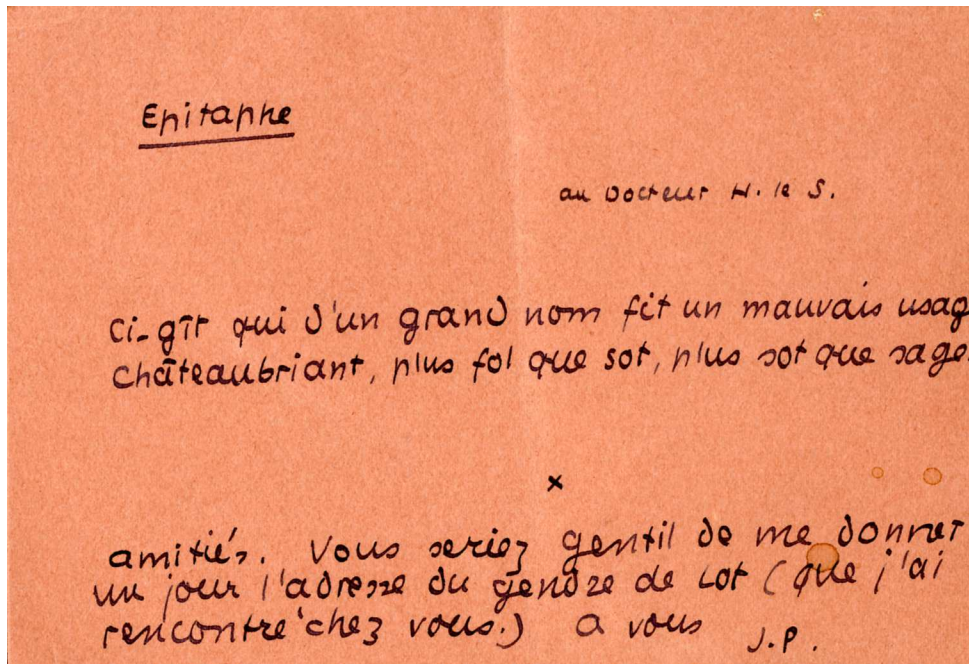 Epitaphe
au Docteur H. le S.
Ci-gît qui d'un grand nom fit un mauvais usag
Châteaubriant, plus fol que sot, plus sot que sage.
x
amitiés. Vous seriez gentil de me donner
un jour l'adresse du gendre de Lot (que j'ai
rencontré chez vous.) a vous J.P.